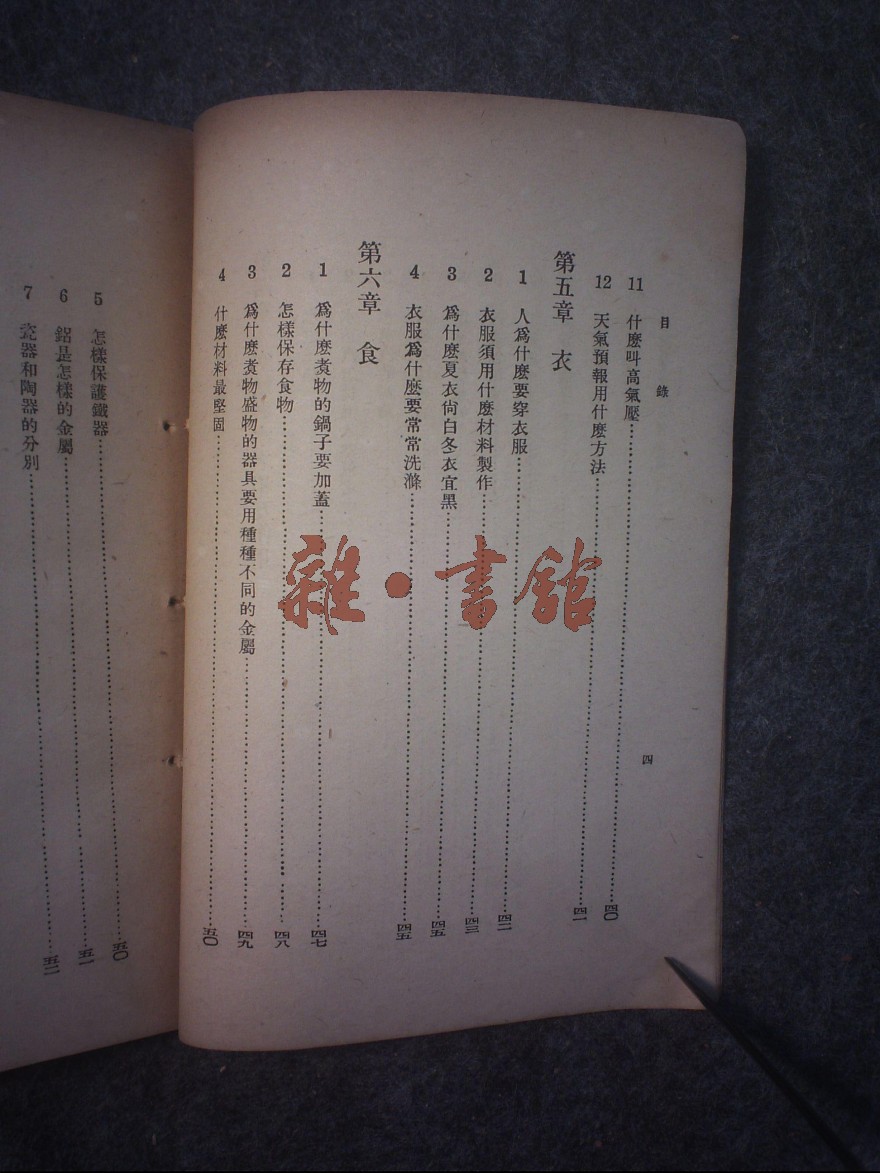 目錄
四
11 什麽叫高氣壓…………四〇
12 天氣預報用什麽方法…………四一
第五章 衣
1 人爲什麽要穿衣服…………四二
2 衣服須用什麽材料製作…………四三
3 爲什麽夏衣尙白冬衣宜黑…………四五
4 衣服爲什麽要常常洗滌…………四五
第六章 食
1 爲什麽煑物的鍋子要加蓋…………四七
2 怎樣保存食物…………四八
3 爲什麽煑物盛物的器具要用種種不同的金屬…………四九
4 什麽材料最堅固…………五〇
5 怎樣保護鐵器…………五〇
6 鋁是怎樣的金屬…………五一
7 瓷器和陶器的分別…………五二
雜·書館